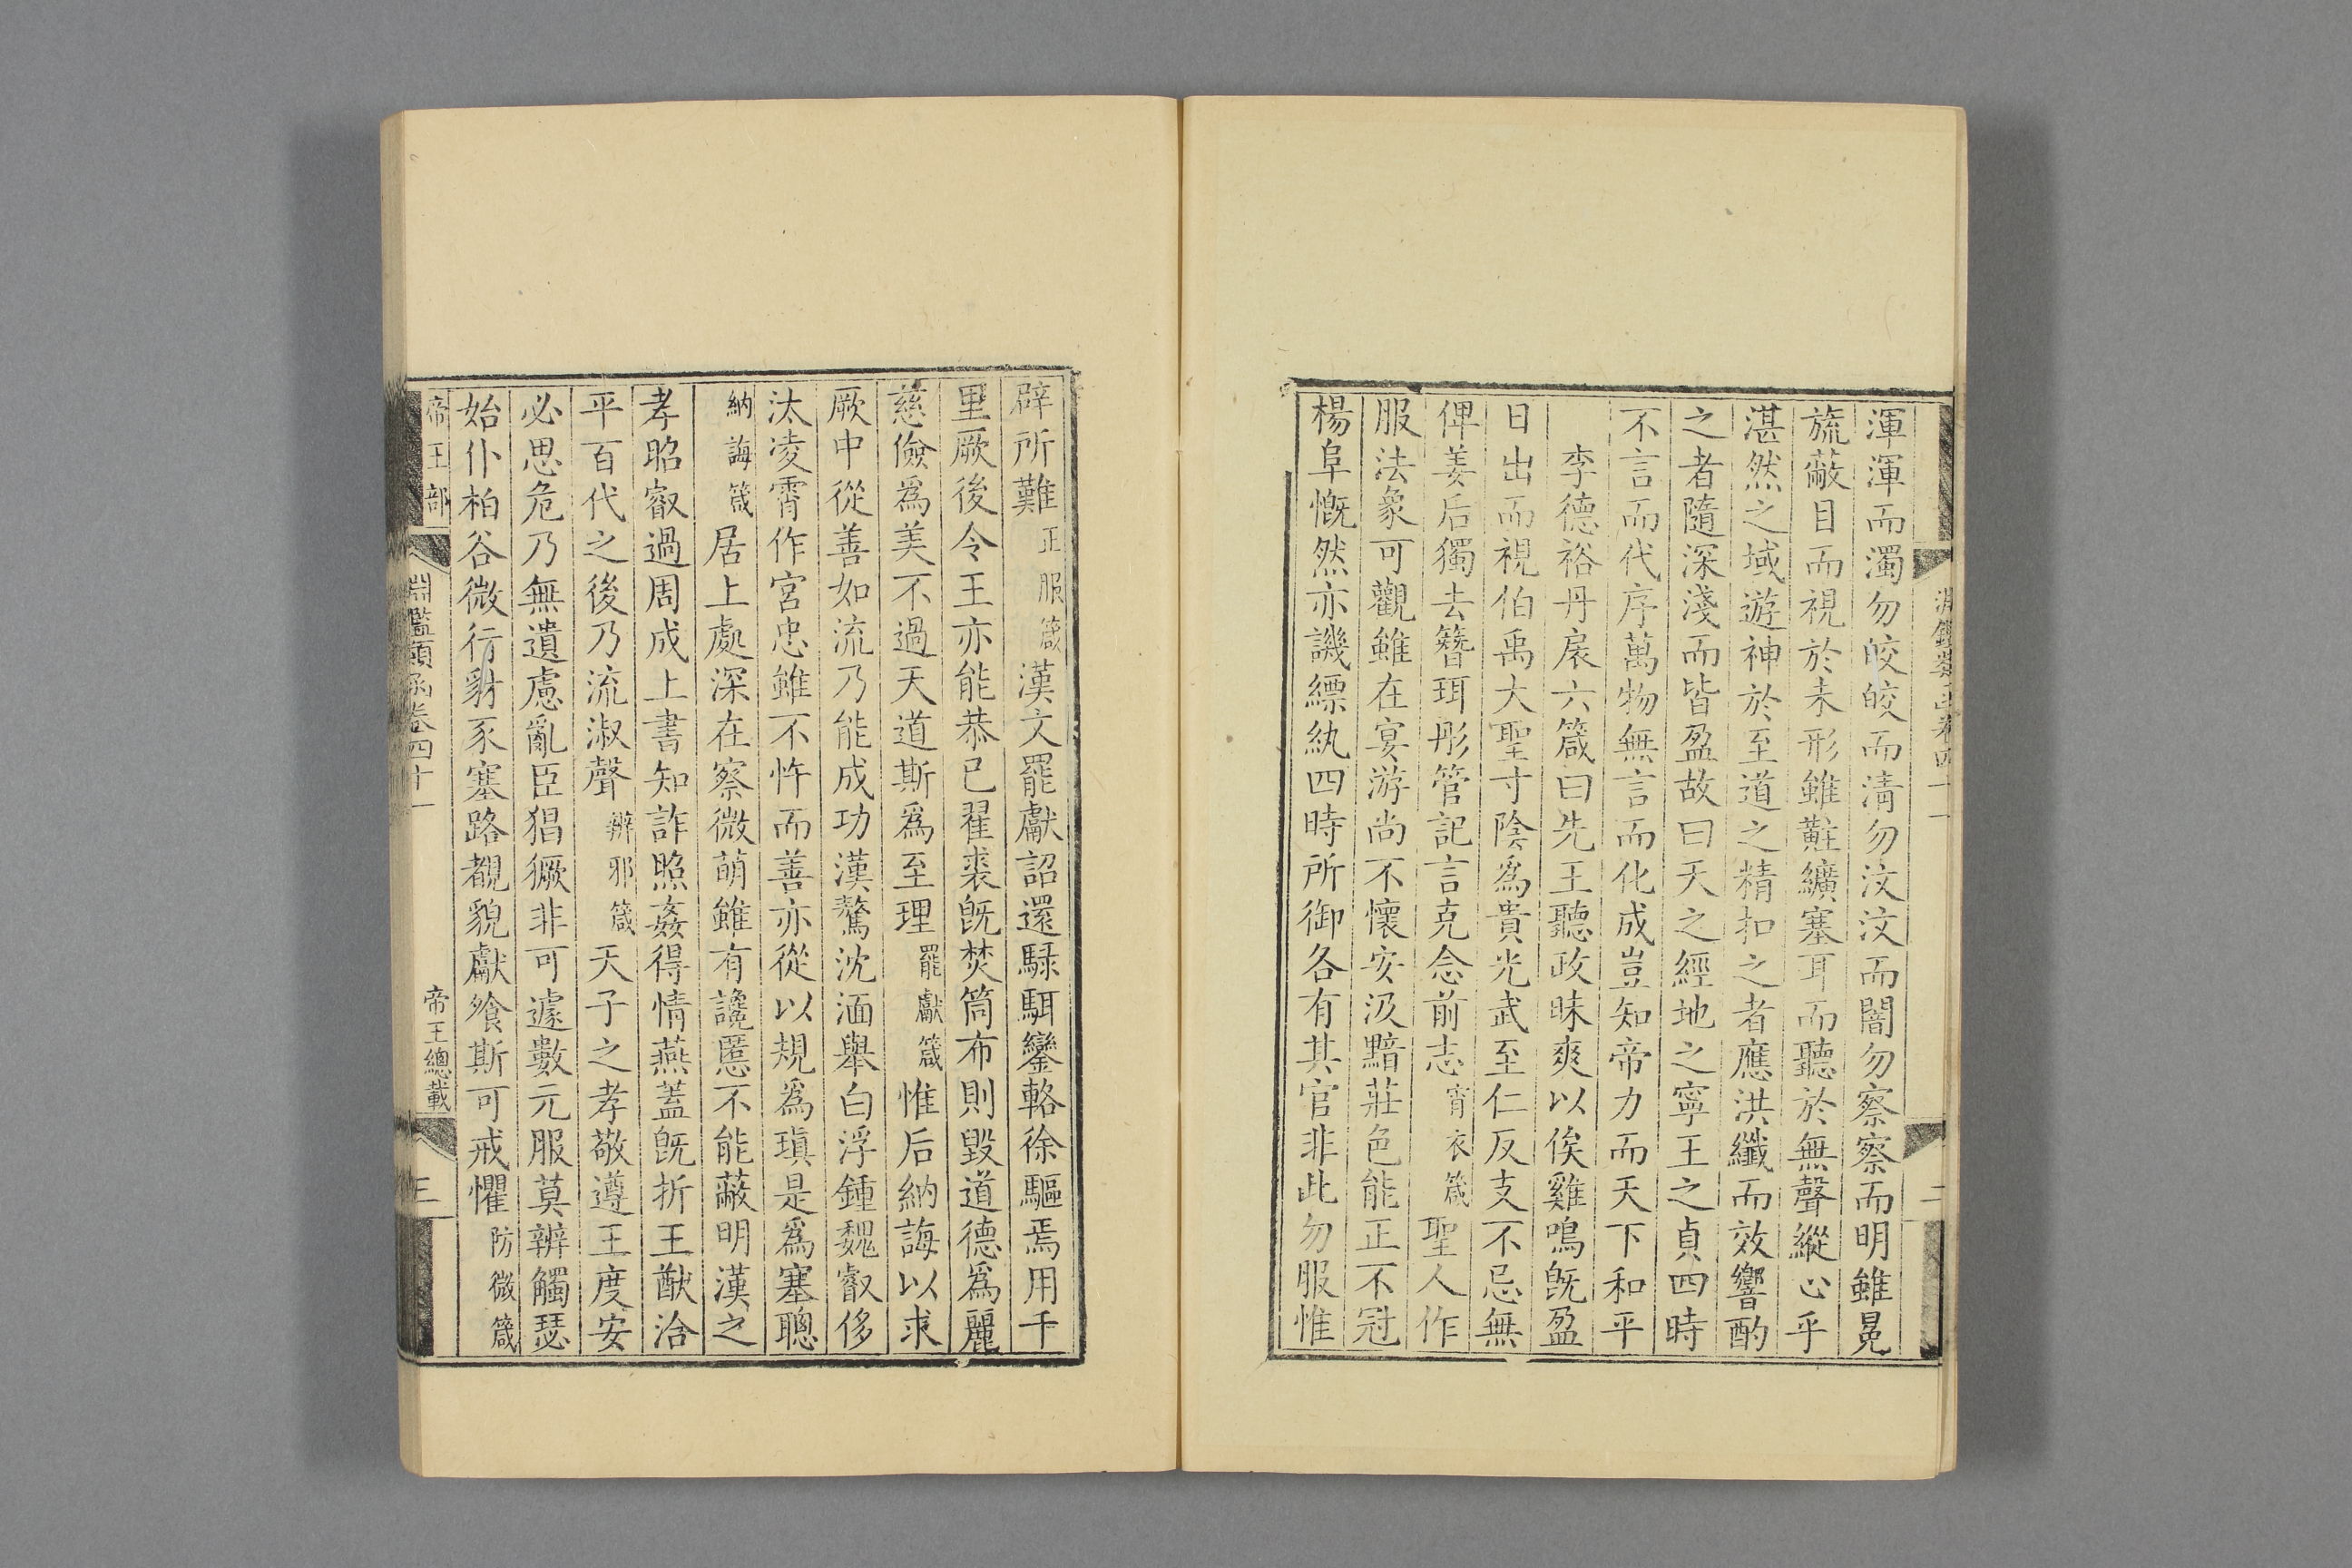 渾渾而濁勿皎皎而淸勿汶汶而闇勿察察而明雖冕
旒蔽目而視於未形雖黈纊塞耳而聽於無聲縱心乎
湛然之域遊神於至道之精扣之者應洪纖而效響酌
之者隨深淺而皆盈故曰天之經地之寧王之貞四時
不言而代序萬物無言而化成豈知帝力而天下和平
李德裕丹扆六箴曰先王聽政昧爽以俟雞鳴旣盈
日出而視伯禹大聖寸陰爲貴光武至仁反支不忌無
俾姜后獨去簪珥彤管記言克念前志宵衣箴聖人作
服法象可觀雖在宴游尚不懷安汲黯莊色能正不冠
楊阜慨然亦譏縹紈四時所御各有其官非此勿服惟
辟所難正服箴漢文罷獻詔還騄駬鑾輅徐驅焉用千
里厥後令王亦能恭己翟裘旣焚筒布則毀道德爲麗
慈儉爲美不過天道斯爲至理罷獻箴惟后納誨以求
厥中從善如流乃能成功漢驁沈湎舉白浮鍾魏叡侈
汰凌霄作宮忠雖不忤而善亦從以規爲瑱是爲塞聰
納誨箴居上處深在察微萌雖有讒慝不能蔽明漢之
孝昭叡過周成上書知詐照姦得情燕蓋旣折王猷洽
平百代之後乃流淑聲辨邪箴天子之孝敬遵王度安
必思危乃無遺慮亂臣猖獗非可遽數元服莫辨觸瑟
始仆柏谷微行豺豕塞路覩貌獻飧斯可戒懼防微箴
帝王部
淵鑑類函卷四十一
帝王總載
三